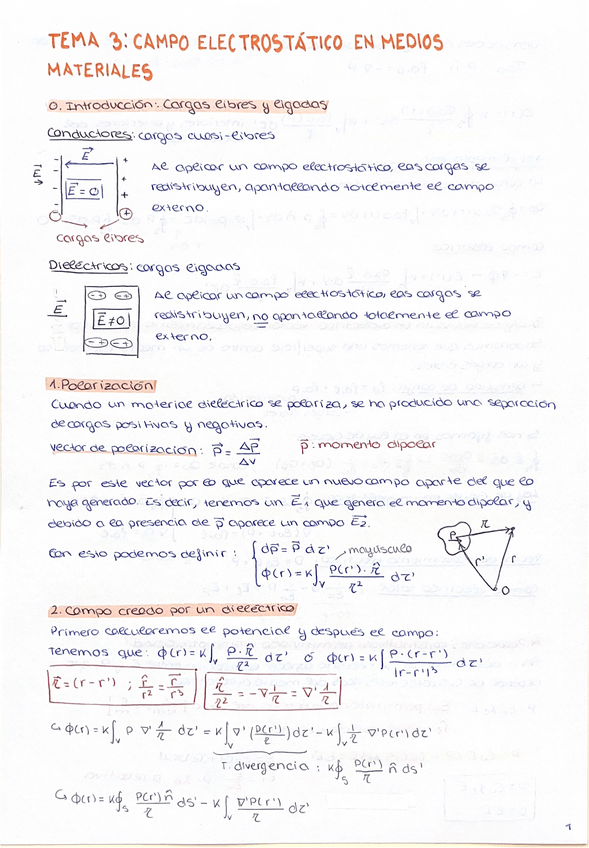 TEMA 3: CAMPO ELECTROSTÁTICO EN MEDIOS
MATERIALES
0. Introducción: Cargas libres y ligadas
Conductores: cargas cuasi-libres
E⃗
E⃗
E⃗ = 0
Al aplicar un campo electrostático, las cargas se
redistribuyen, apantallando totalmente el campo
externo.
cargas libres
Dieléctricos: cargas ligadas
E⃗
E⃗ ≠ 0
Al aplicar un campo electrostático, las cargas se
redistribuyen, no apantallando totalmente el campo
externo.
1. Polarización
Cuando un material dieléctrico se polariza, se ha producido una separación
de cargas positivas y negativas.
Vector de polarización: P⃗ = Δp⃗/ΔV p⃗: momento dipolar
Es por este vector por lo que aparece un nuevo campo aparte del que lo
haya generado. Es decir, tenemos un E⃗₁ que genera el momento dipolar, y
debido a la presencia de p⃗ aparece un campo E⃗₂.
Con esto podemos definir: { dp⃗ = P⃗ dτ' mayúscula
ϕ(r) = K∫ᵥ P(r')·r̂/r² dτ'
P r r' r O
2. Campo creado por un dieléctrico
Primero calcularemos el potencial y después el campo:
Tenemos que: ϕ(r) = K∫ᵥ P·r̂/r² dτ' ó ϕ(r) = K∫ P·(r-r')/|r-r'|³ dτ'
r⃗ = (r-r') ; r̂/r² = r⃗/r³ r̂/r² = -∇ 1/r = ∇' 1/r
↳ ϕ(r) = K∫ᵥ P ∇' 1/r dτ' = K∫ᵥ ∇' (P(r')/r) dτ' - K∫ᵥ 1/r ∇'P(r') dτ'
T. divergencia: K∮ₛ P(r')/r n̂ ds'
↳ ϕ(r) = K∮ₛ P(r')n̂/r ds' - K∫ᵥ ∇'P(r')/r dτ'
1